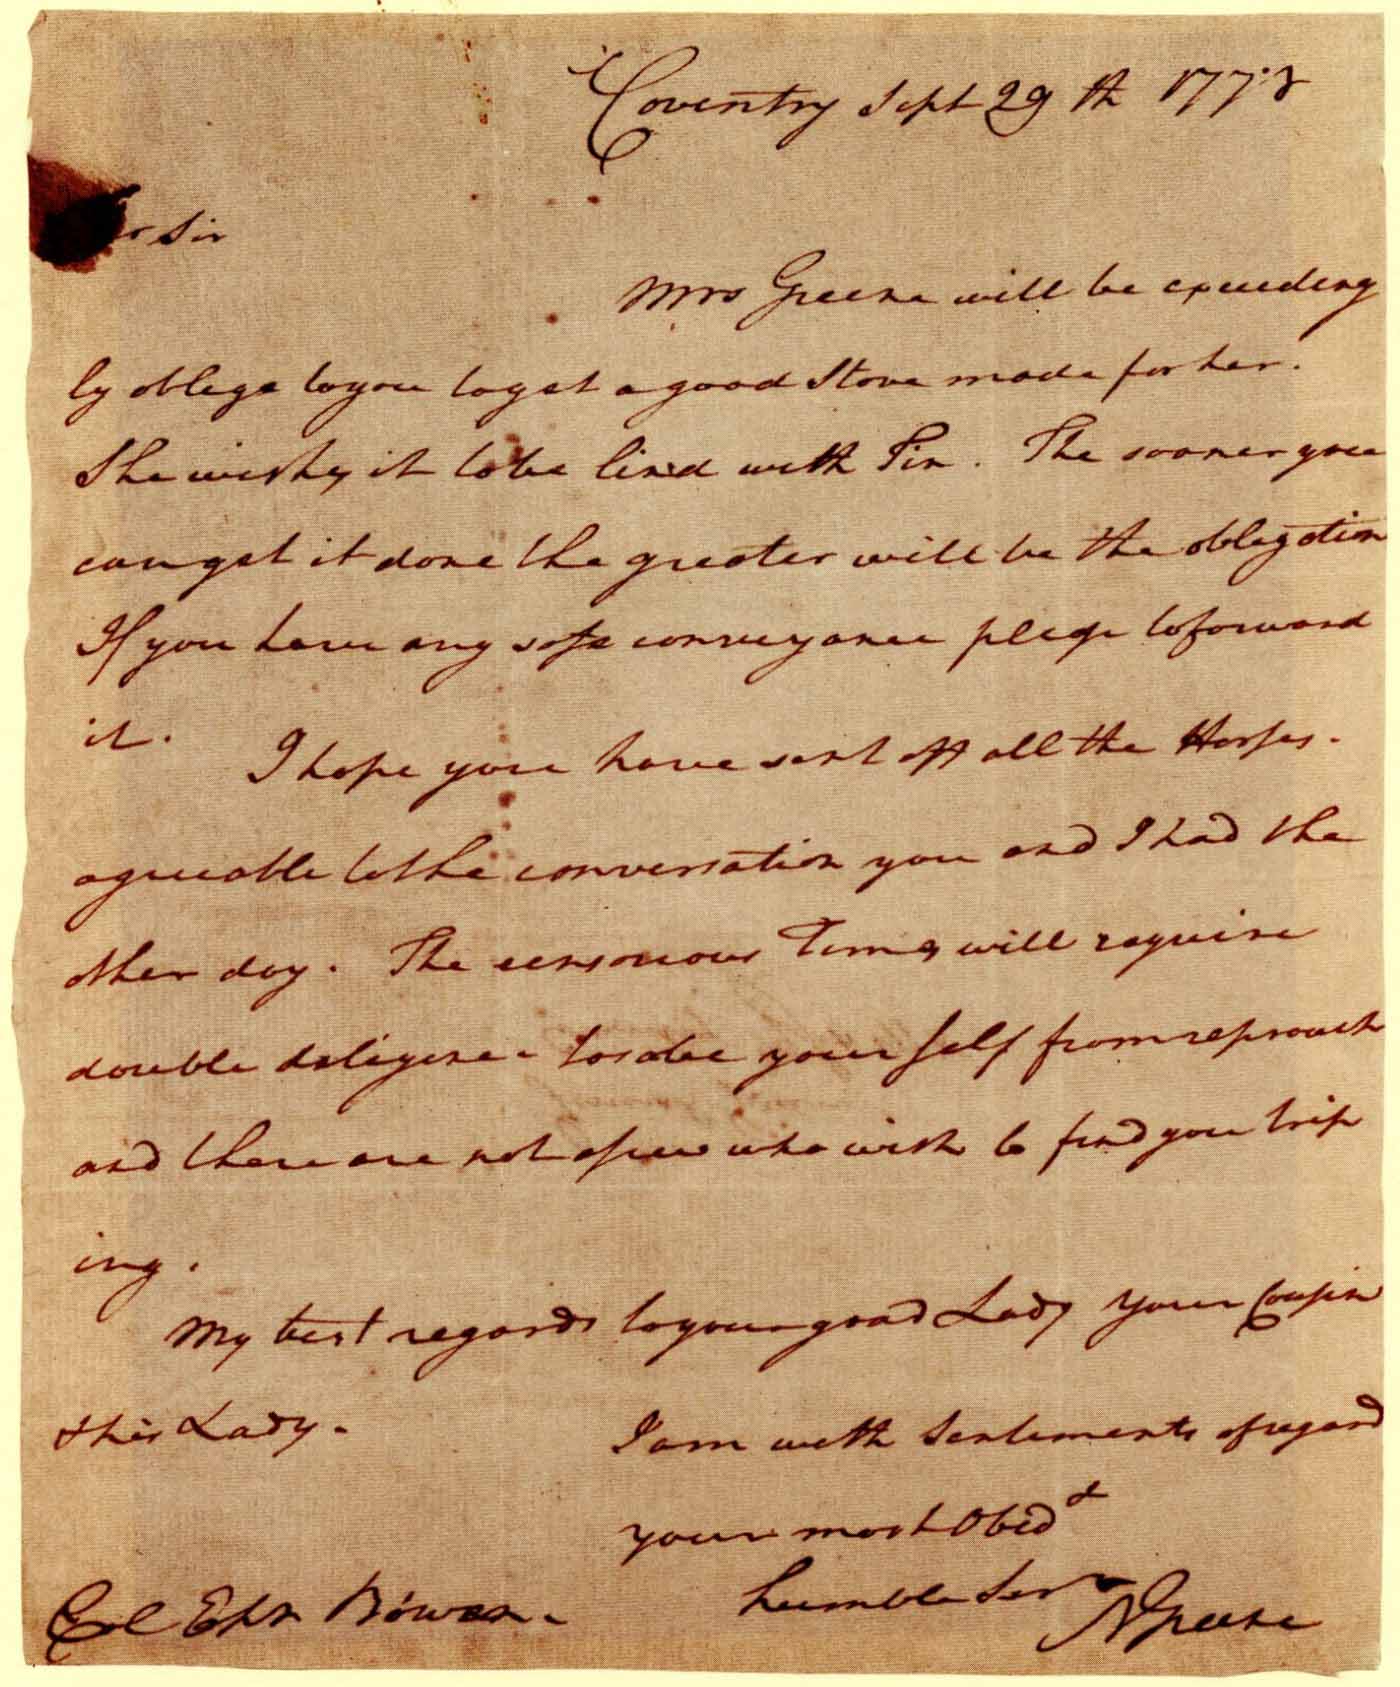 Coventry Sept 29th 1778
Sir
Mrs Greene will be exceeding
ly oblege to you to get a good Stove made for her.
She wishes it to be lin'd with Tin. The sooner you
can get it done the greater will be the obligation
If you have any safe conveyance please to forward
it.
I hope you have sent off all the Horses.
agreeable to the conversation you and I had the
other day. The censorious Times will require
double deligence to save your self from reproach
and there are not a few who wish to find you trip
ing.
My best regards to your good Lady your Cousin
& his Lady.
I am with Sentiments of regard
your most Obed
humble Ser
N Greene
Col Eph Bowen.